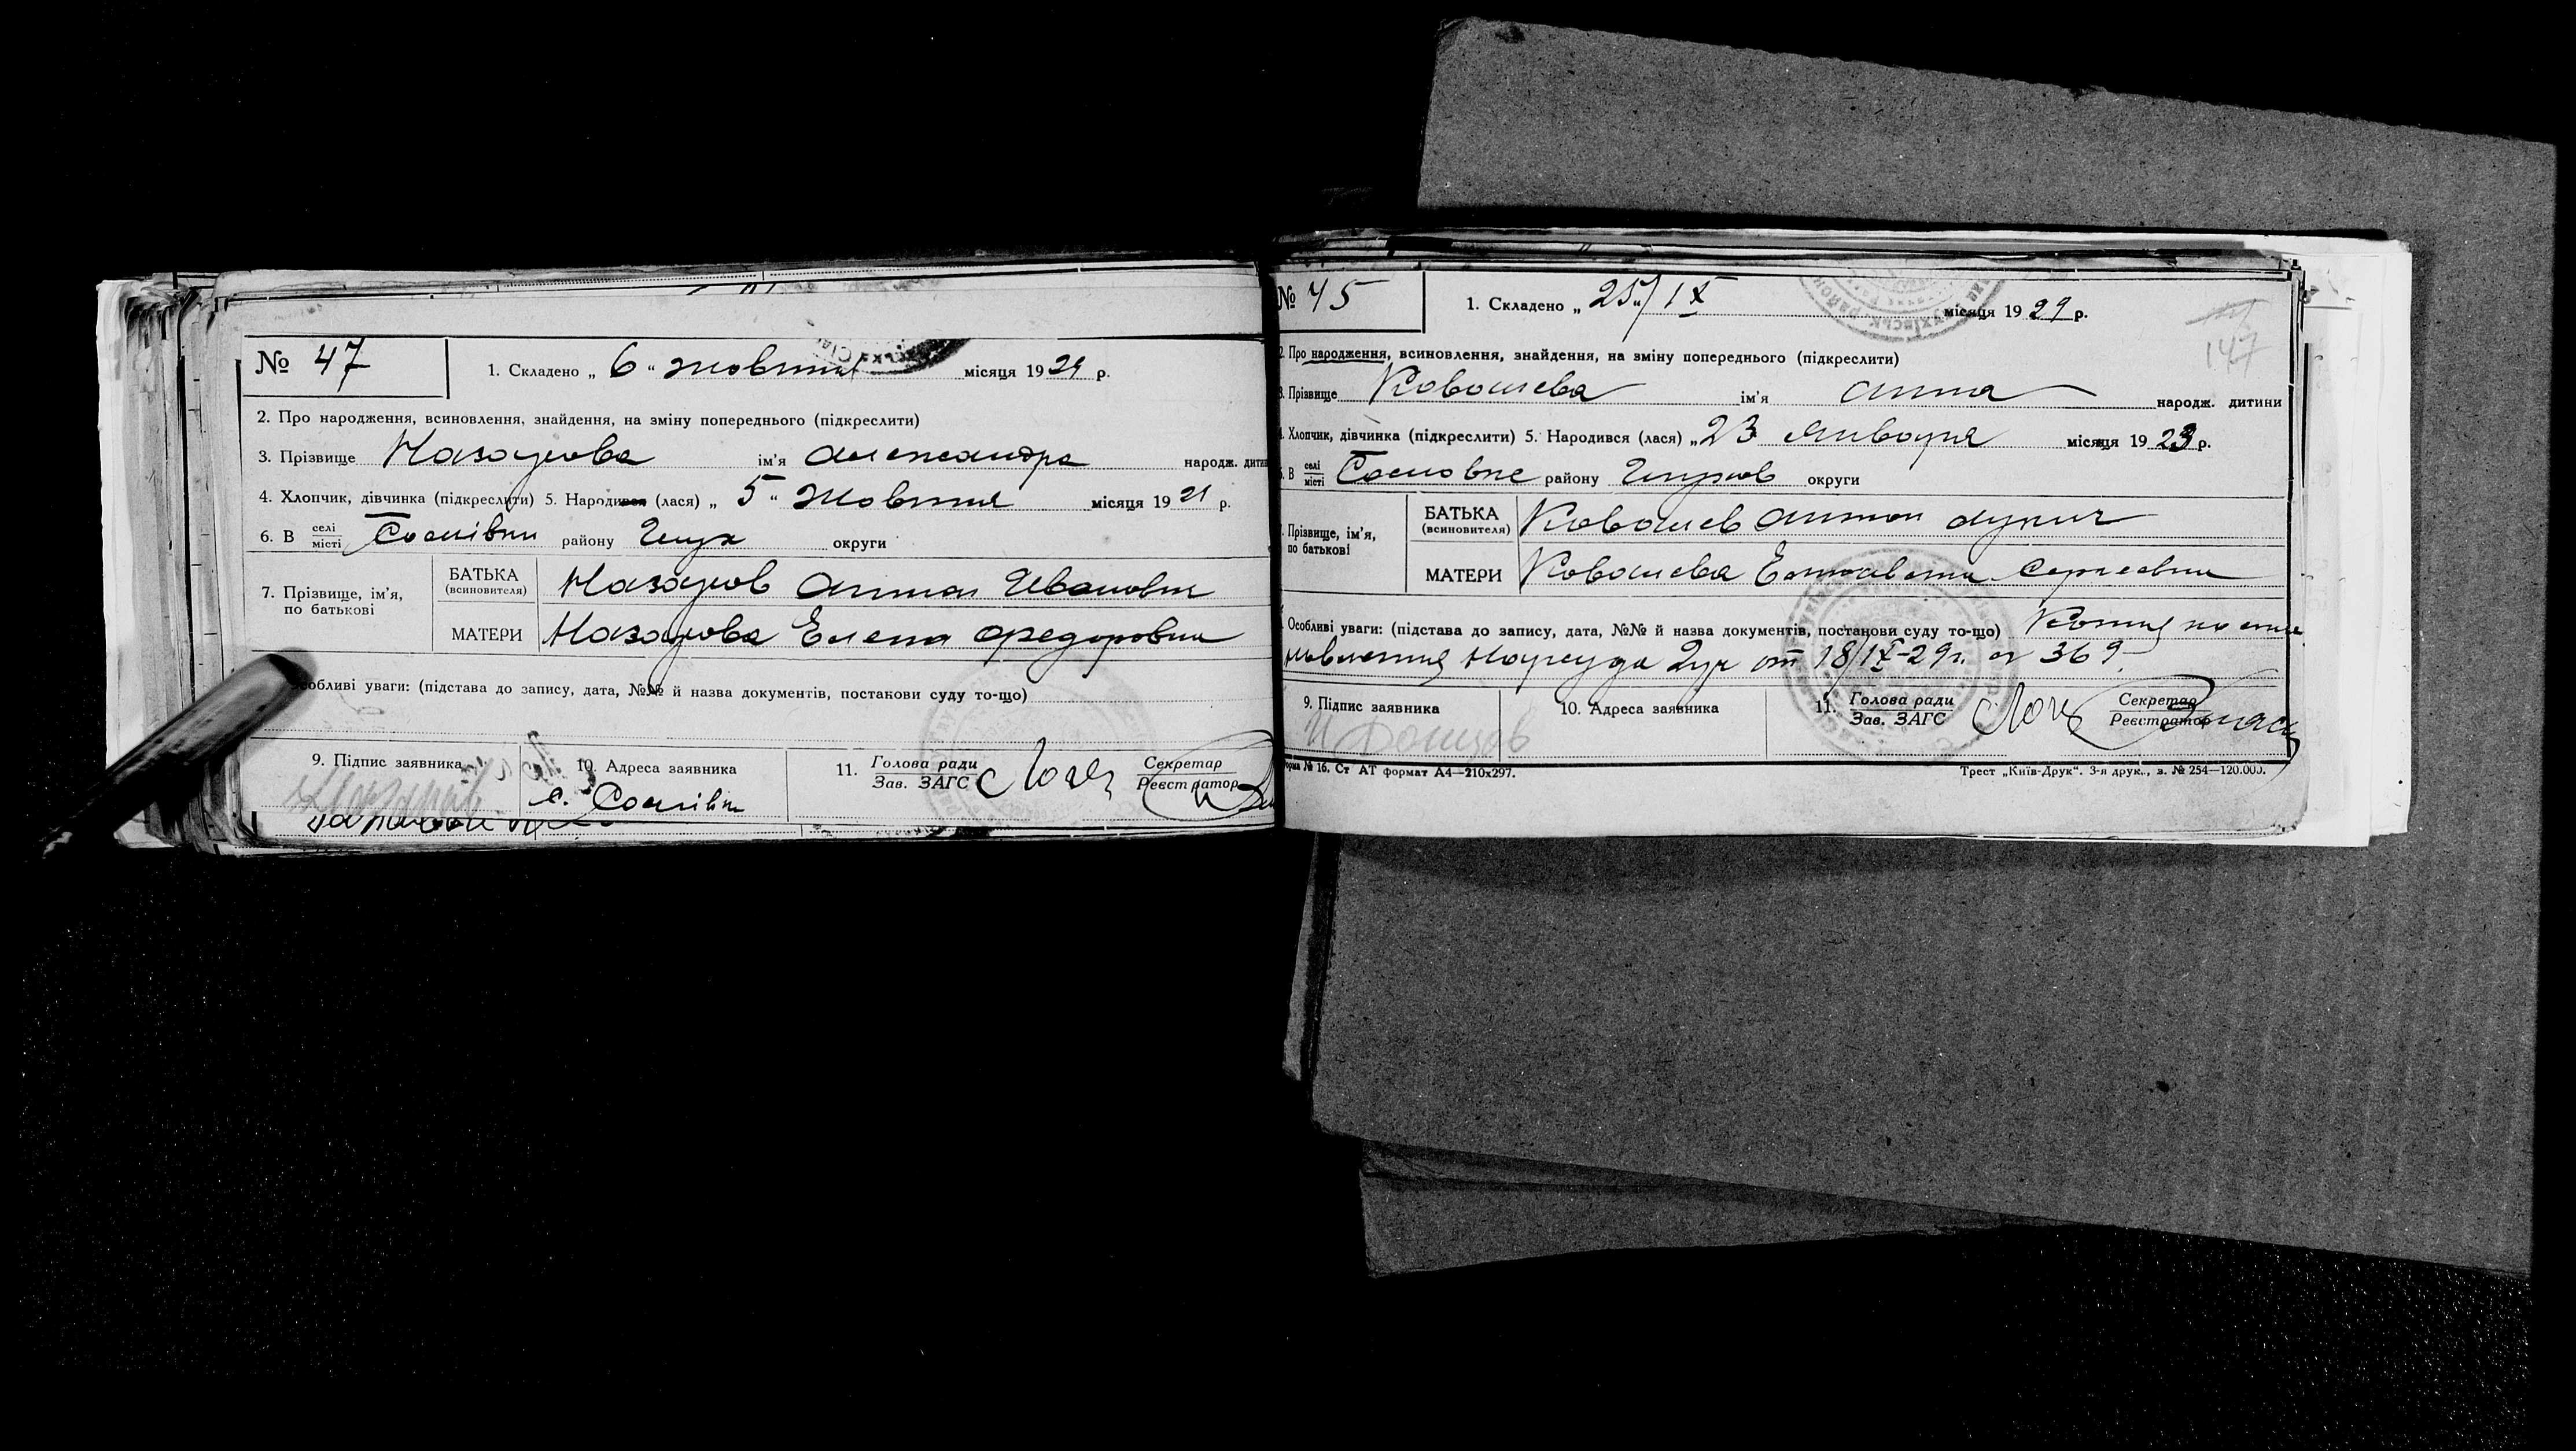 № 47
1. Складено „ 6 “ жовтня місяця 1929 р.
2. Про народження, всиновлення, знайдення, на зміну попереднього (підкреслити)
3. Прізвище Назарова ім'я Александра народж. дити
4. Хлопчик, дівчинка (підкреслити) 5. Народився (лася) „ 5 “ жовтня місяця 1929 р.
6. В селі місті Соснівки району Глух округи
7. Прізвище, ім'я, по батькові
БАТЬКА (всиновителя) Назаров Антон Иванович
МАТЕРИ Назарова Елена Федоровна
собливі уваги: (підстава до запису, дата, №№ й назва документів, постанови суду то-що)
9. Підпис заявника Назаров
10. Адреса заявника с. Соснівка
11. Голова ради Зав. ЗАГС
Секретар Реєстратор
№ 45
1. Складено „ 25/IX місяця 1929 р.
147
2. Про народження, всиновлення, знайдення, на зміну попереднього (підкреслити)
3. Прізвище Ковалева ім'я Анна народж. дитини
4. Хлопчик, дівчинка (підкреслити) 5. Народився (лася) „ 23 Января місяця 1923 р.
В селі місті Сосновке району Глухов округи
Прізвище, ім'я, по батькові
БАТЬКА (всиновителя) Ковалев Антон
МАТЕРИ Ковалева Елизавета Сергеевна
Особливі уваги: (підстава до запису, дата, №№ й назва документів, постанови суду то-що) Копия поста
новления Нарсуда 2уч от 18/IX-29 г. № 369
9. Підпис заявника
10. Адреса заявника
11. Голова ради Зав. ЗАГС
Секретар Реєстратор
орма № 16. Ст АТ формат А4—210х297.
Трест „Київ-Друк“. 3-я друк., з. № 254—120.000.